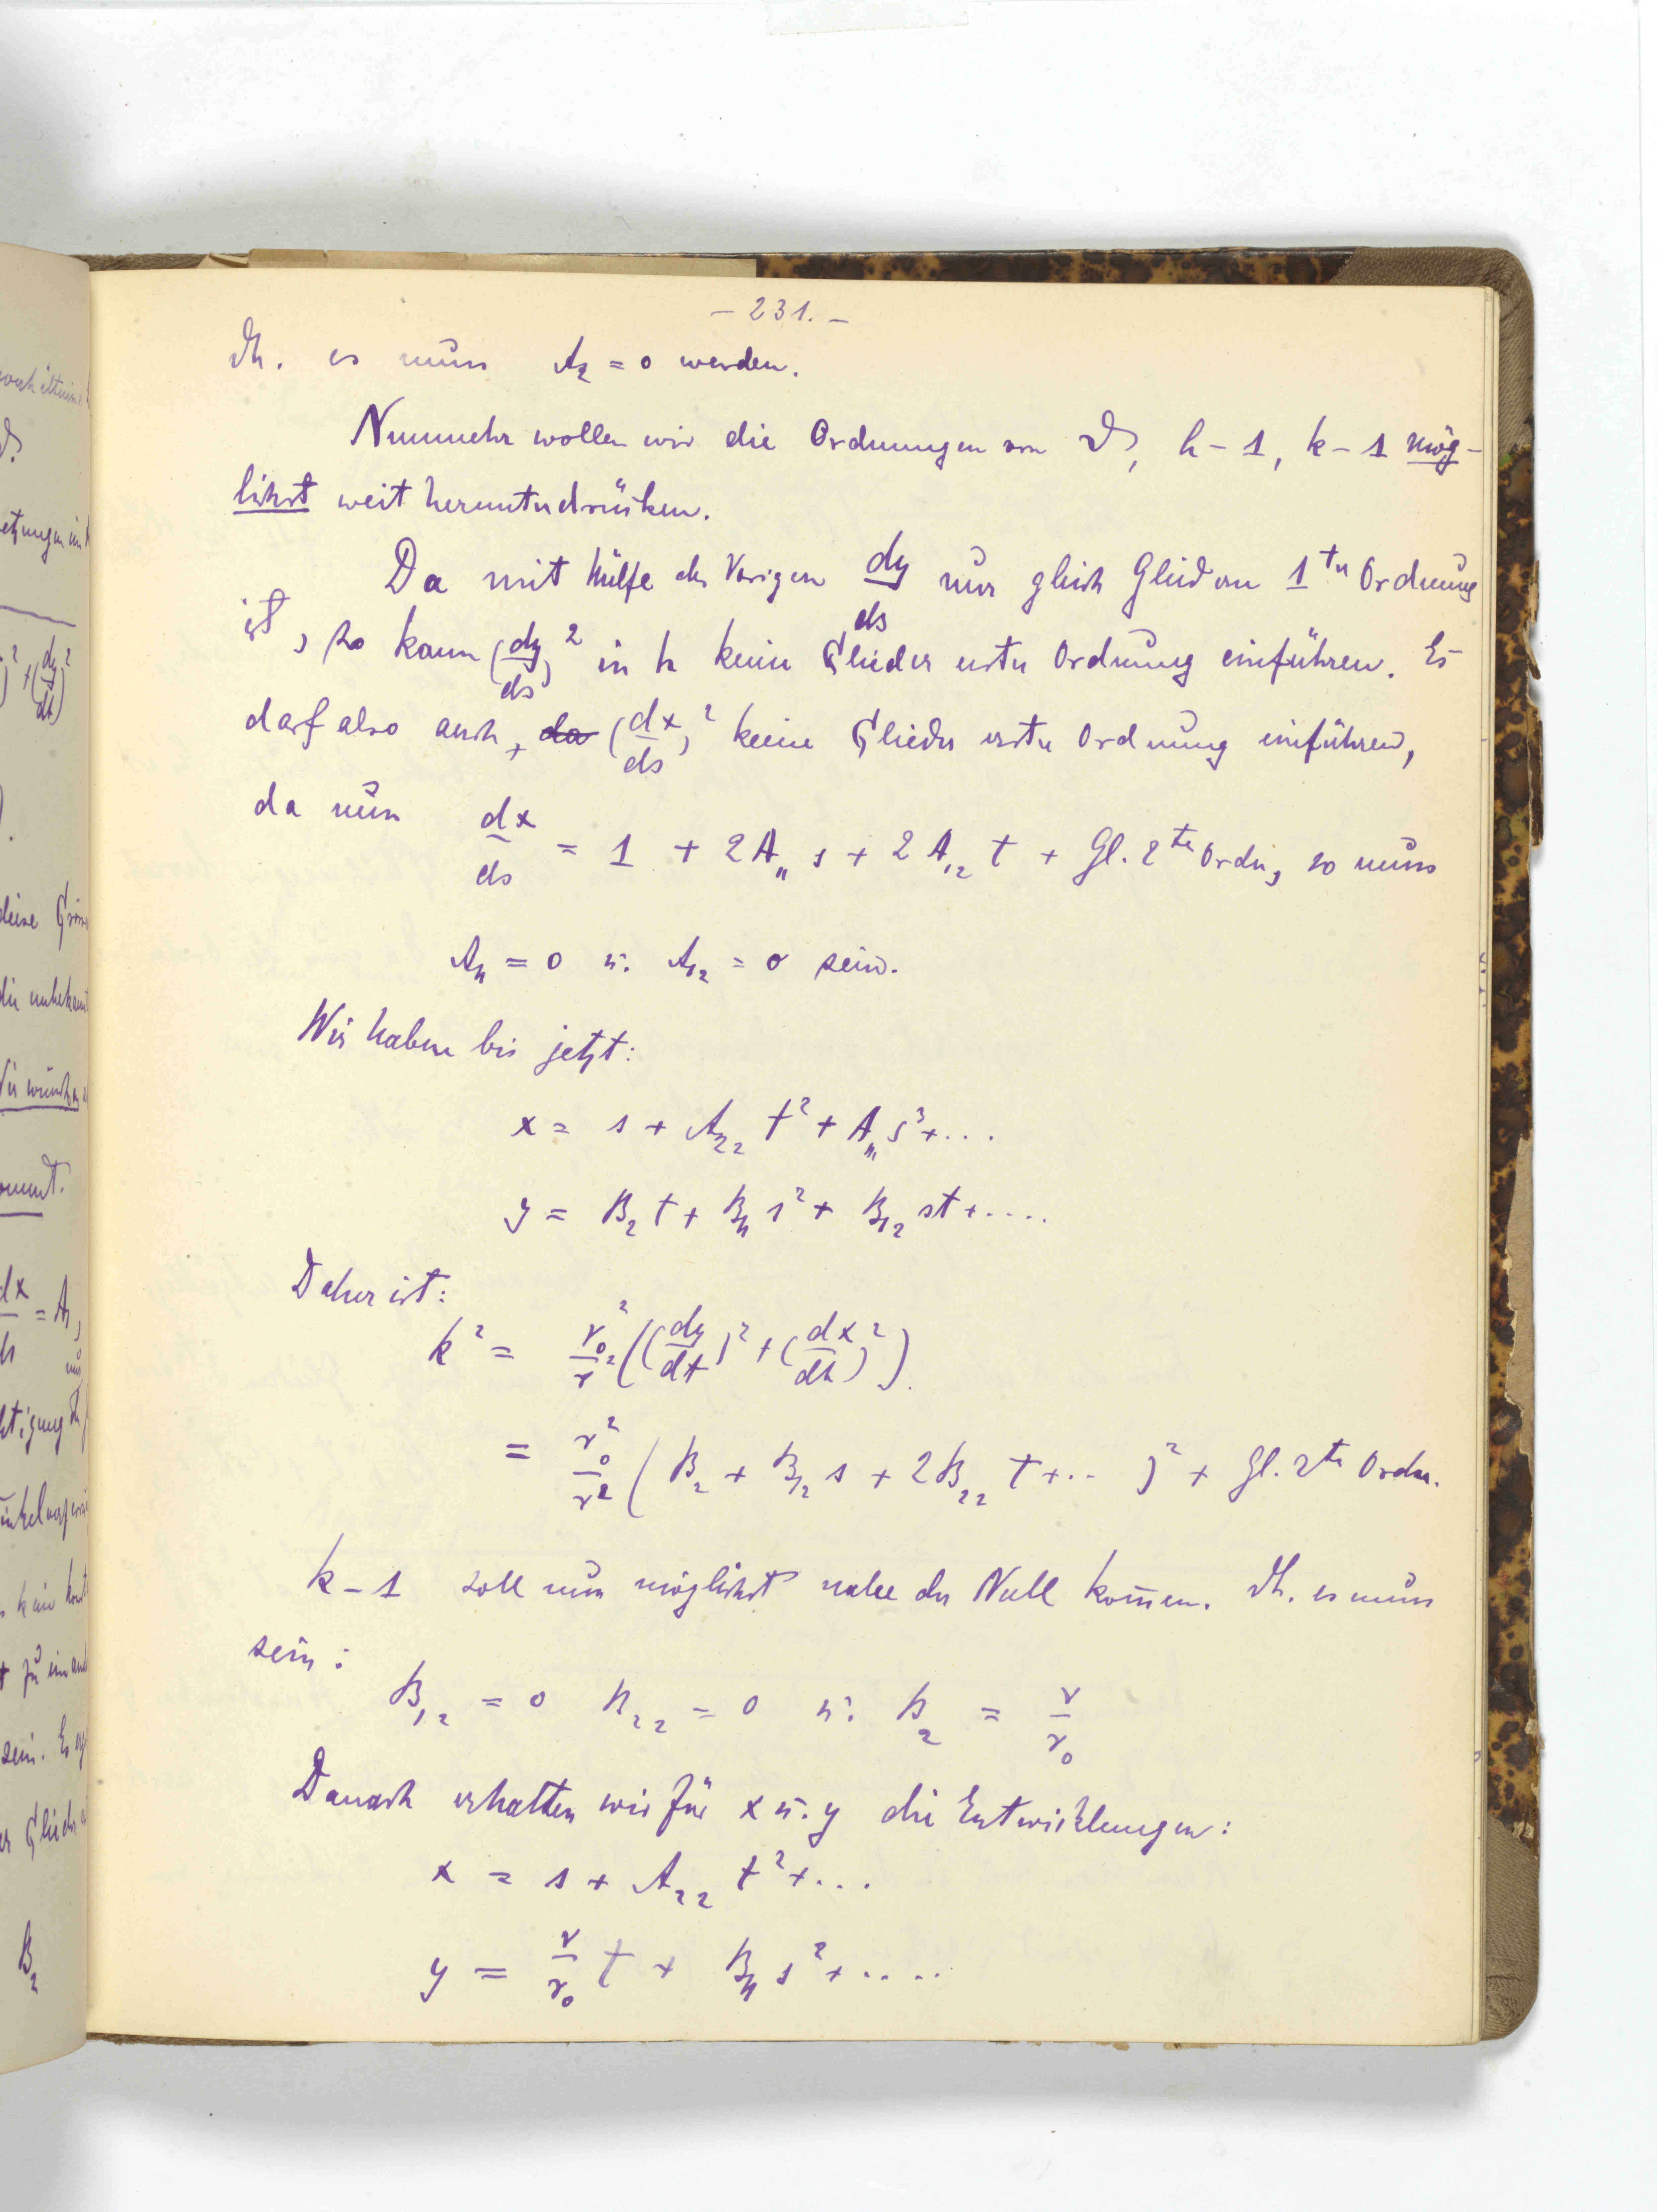 – 231. –
d.h. es muss A₂ = 0 werden.
Nunmehr wollen wir die Ordnungen von ϑ, h – 1, k – 1 mög-
lichst weit herunterdrücken.
Da mit Hülfe des Vorigen dy/ds nur gleich Glied von 1ter Ordnung
ist, so kann (dy/ds)² in h keine Glieder erster Ordnung einführen. Es
darf also auch, (dx/ds)² keine Glieder erster Ordnung einführen,
da nun dx/ds = 1 + 2A₁₁ s + 2A₁₂ t + Gl. 2ter Ordn, so muss
A₁₁ = 0 u. A₁₂ = 0 sein.
Wir haben bis jetzt:
x = s + A₂₂ t² + A₁₁₁ s³ + ...
y = B₂ t + B₁₁ s² + B₁₂ st + ....
Daher ist:
k² = r₀²/r² ((dy/dt)² + (dx/dt)²).
= r₀²/r² (B₂ + B₁₂ s + 2B₂₂ t + ..)² + Gl. 2ter Ordn.
k – 1 soll nun möglichst nahe der Null kom̄en. d.h. es muss
sein:
B₁₂ = 0 B₂₂ = 0 u. B₂ = r/r₀
Danach erhalten wir für x u. y die Entwicklungen:
x = s + A₂₂ t² + ...
y = r/r₀ t + B₁₁ s² + ....